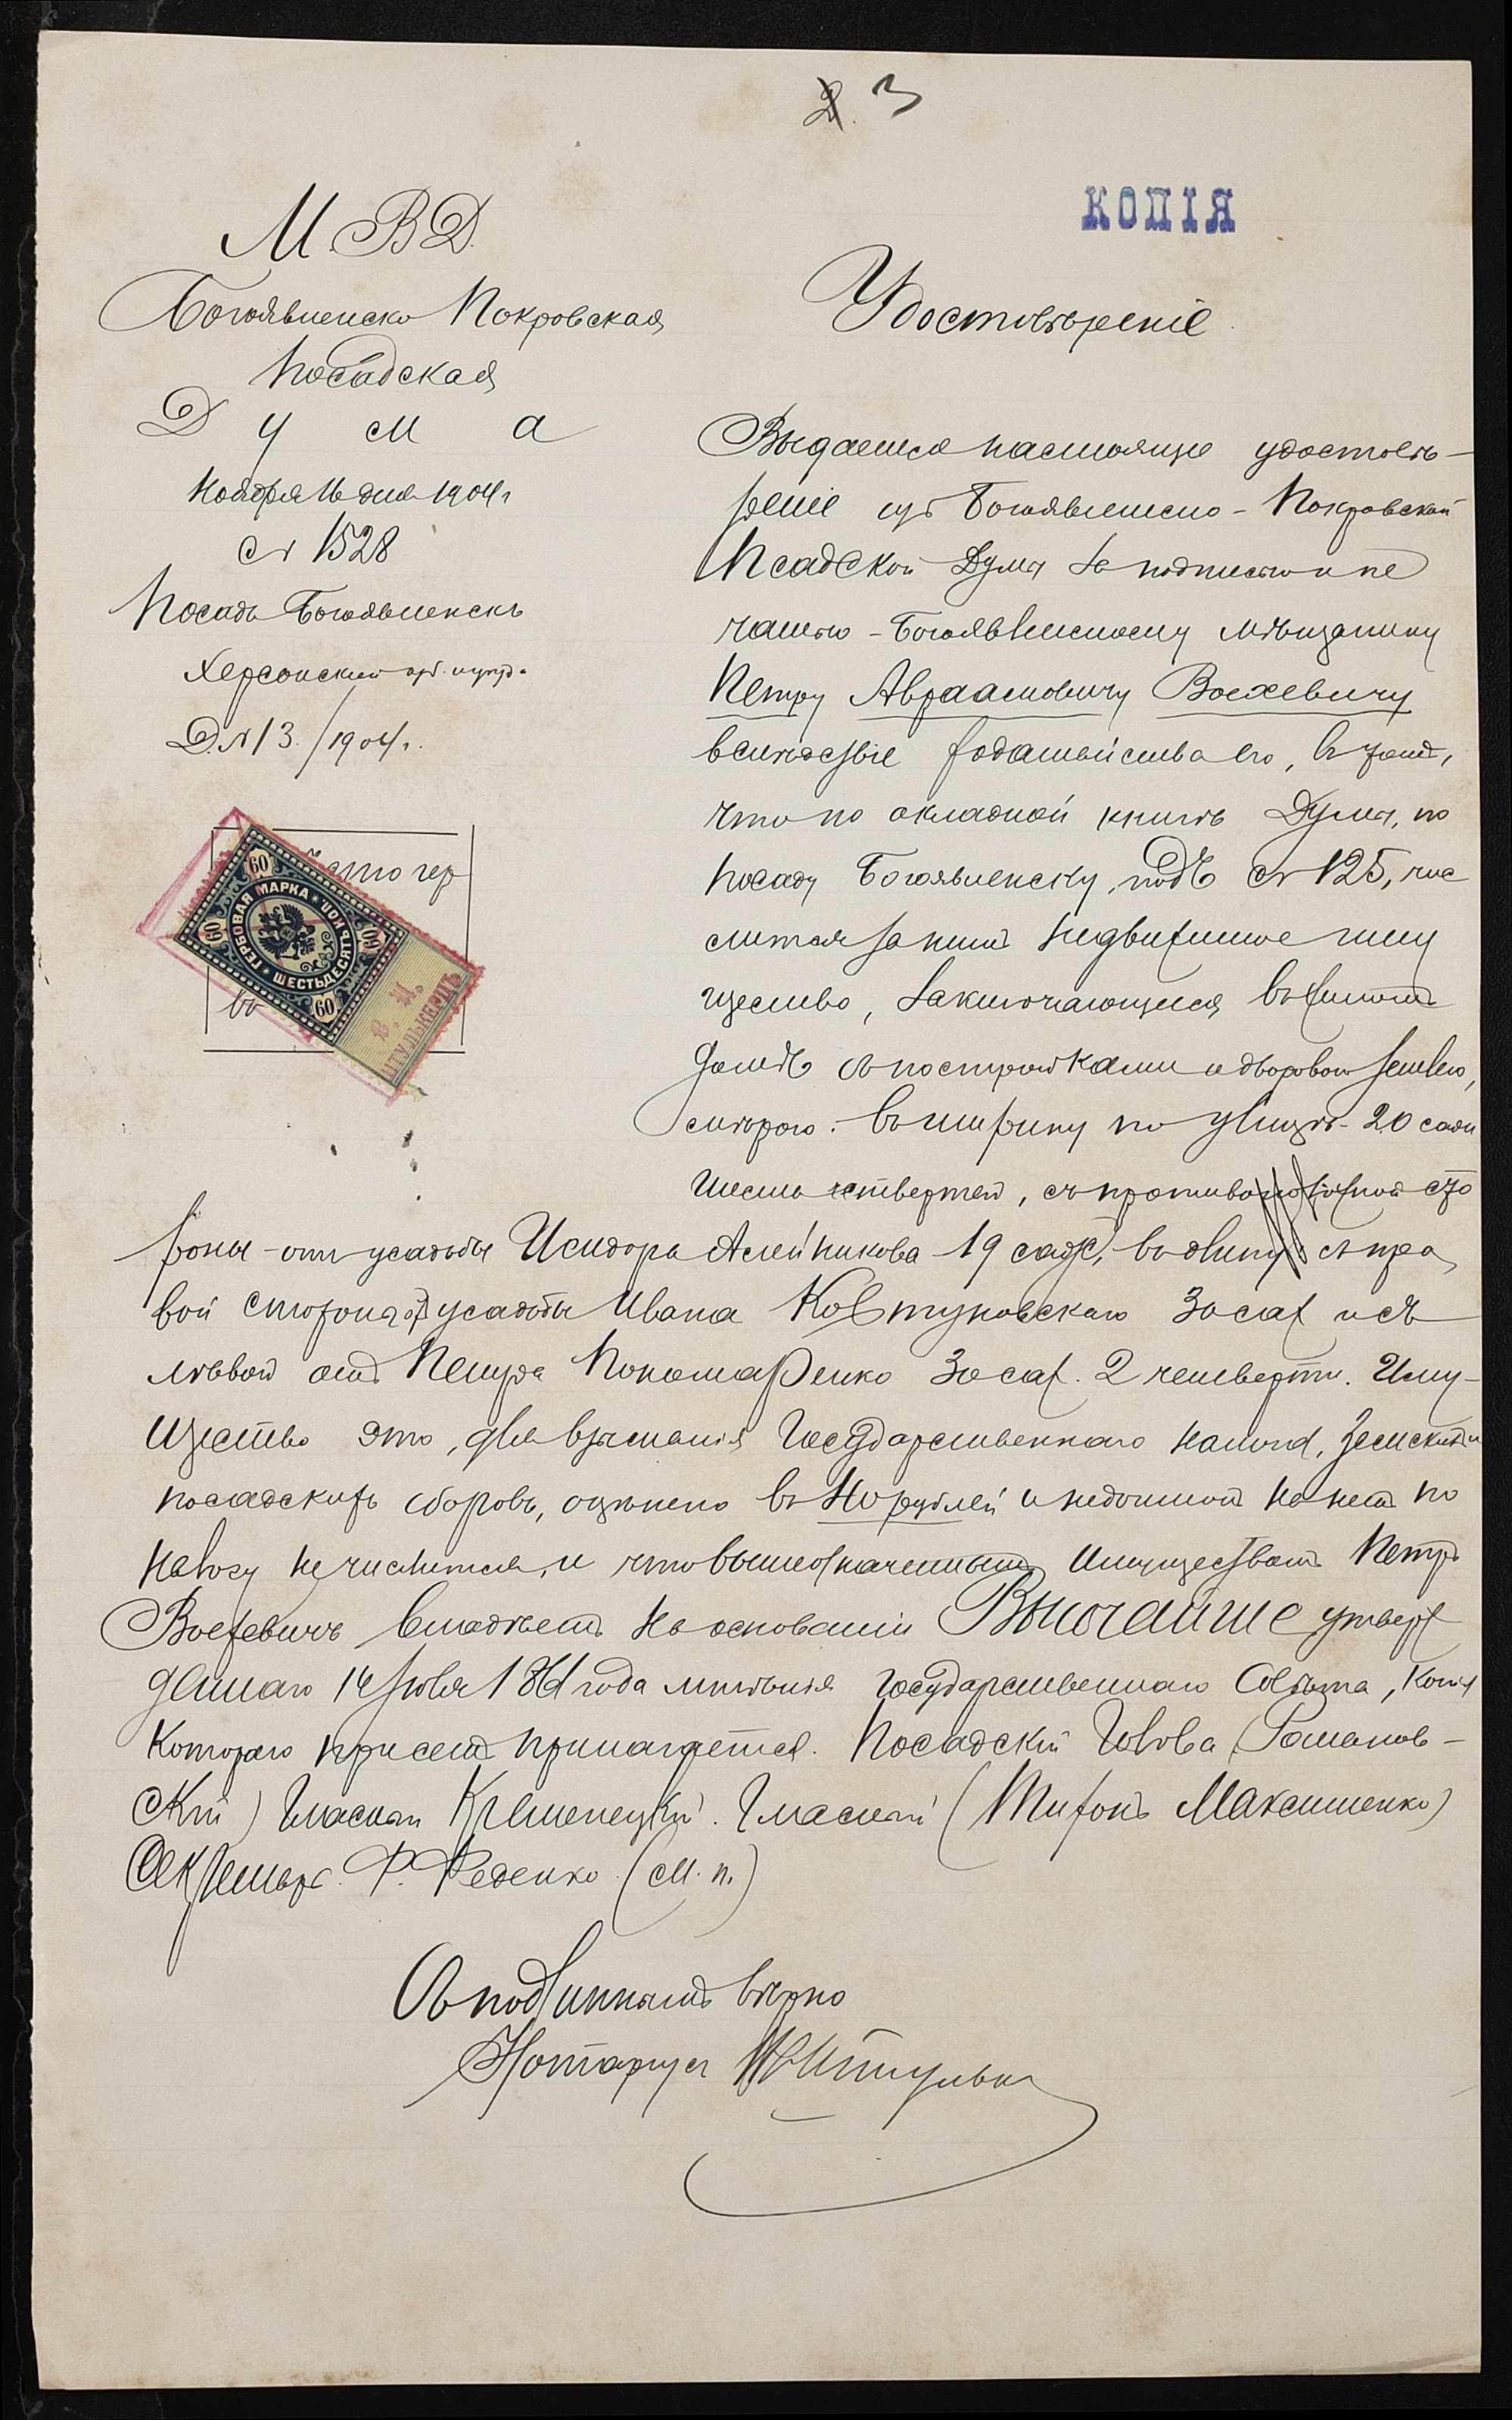 2. 3
КОПІЯ
М.В.Д.
Богоявленско Покровская
Посадская
Дума
Ноября 16 дня 1904 г
№ 1528
Посадъ Богоявленскъ
Херсонской губ. и уѣзда
Д. № 13./1904 г.
60 60 60 60
ГЕРБОВАЯ МАРКА ШЕСТЬДЕСЯТЪ КОП
В. И.
ШТУЛЬКЕЦЪ
гер
въ
Удостовѣреніе
Выдается настоящее удостовѣ-
реніе изъ Богоявленско-Покровской
Псадской Думы за подписью и пе
чатью - Богоявленскому мѣщанину
Петру Авраамовичу Воежевичу
вслѣдствіе ходатайства его, въ томъ,
что по окладной книгѣ Думы, по
посаду Богоявленску, подъ № 125, чис
лится за нимъ недвижимое иму
щество, заключающееся въ жиломъ
домѣ съ постройками и дворовою землею,
мѣрою: въ ширину по улицѣ - 20 саж
шесть четвертей, съ противоположной сто
роны - отъ усадьбы Исидора Алейникова 19 саж, въ длину: съ пра
вой стороны отъ усадьбы Ивана Ковтуновскаго 30 саж и съ
лѣвой отъ Петра Пономаренко 30 саж. 2 четверти. Иму-
щество это, для взысканія Государственнаго налога, земскихъ и
посадскихъ сборовъ, оцѣнено въ рублей и недоимки на немъ по
налогу не числится, и что вышеозначеннымъ имуществомъ Петръ
Воежевичъ владѣетъ на основаніи Высочайше утверж
деннаго 14 года мнѣнія Государственнаго Совѣта, копія
котораго при семъ прилагается. Посадскій Голова (Романов-
скій) Гласный Кременецкій. Гласный (Тихонъ Максименко)
Секретарь Ф. Феденко (М.п.)
Съ подлиннымъ вѣрно
Нотаріусъ